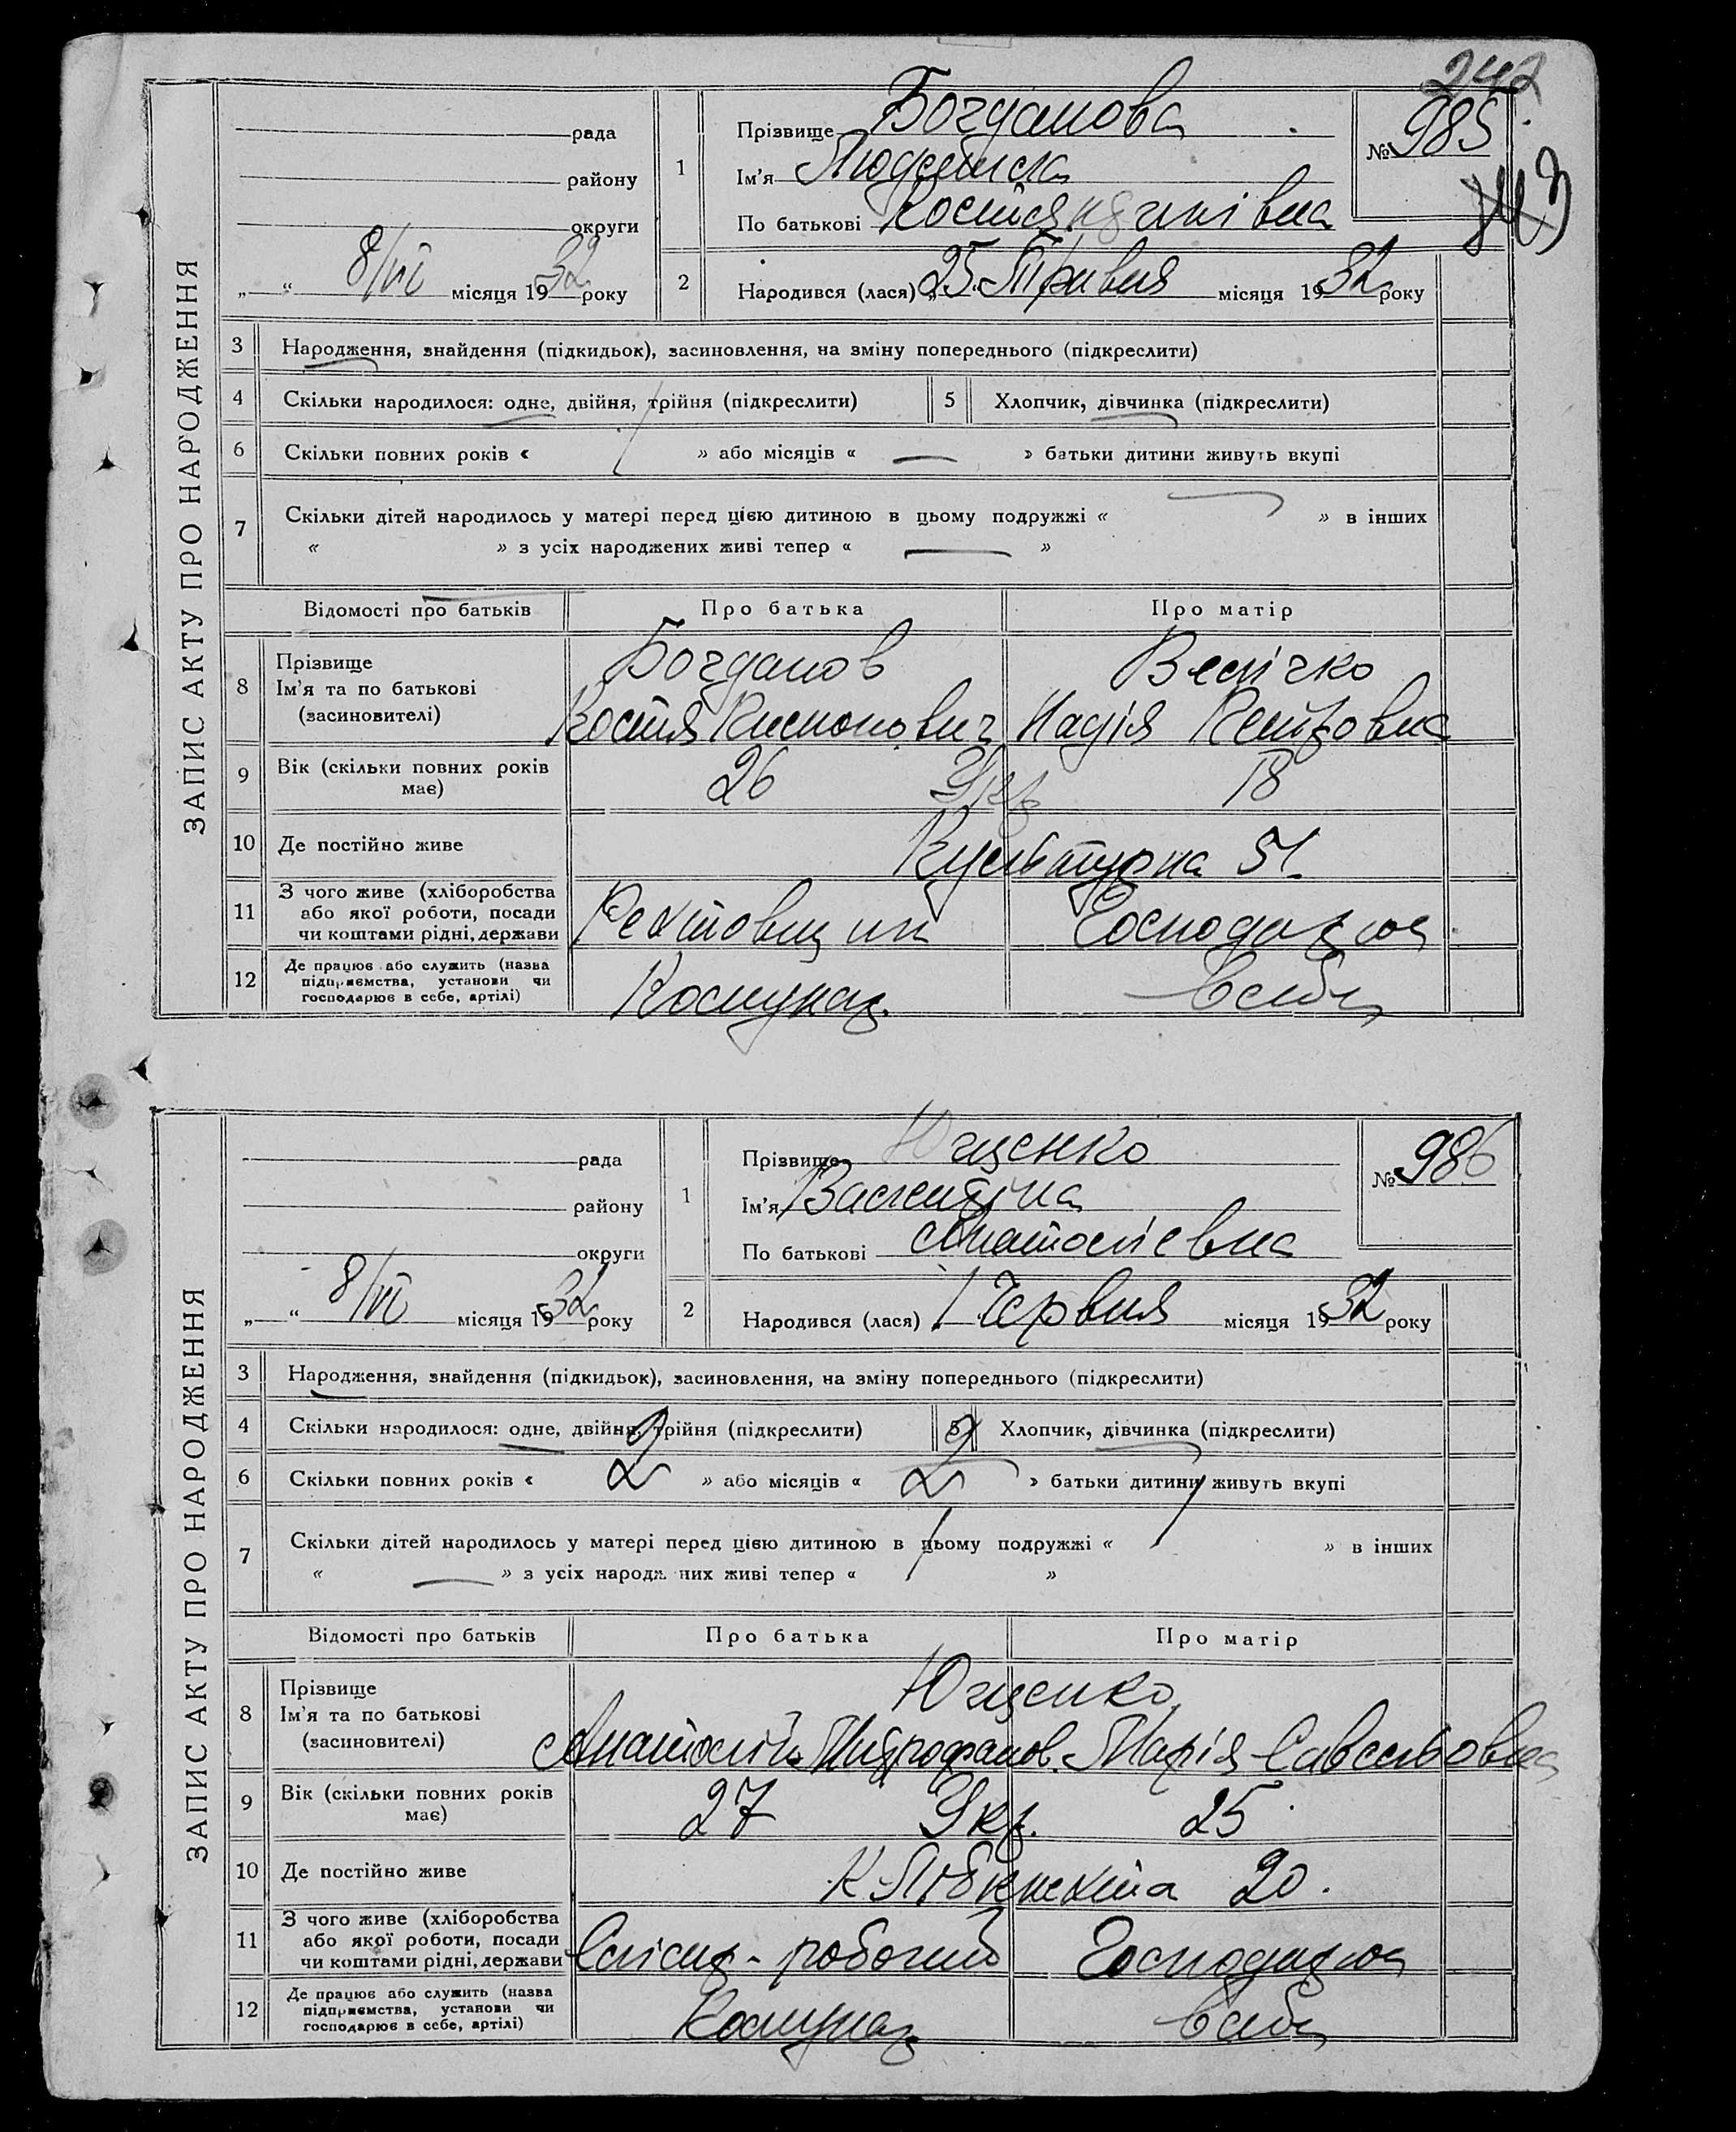 242
ЗАПИС АКТУ ПРО НАРОДЖЕННЯ
рада
району
округи
„ “ 8/VI місяця 1932 року
1
Прізвище Богданова
Ім’я Людмила
По батькові
№ 985
2
Народився (лася) „25 Травня місяця 1932 року
3 Народження, знайдення (підкидьок), засиновлення, на зміну попереднього (підкреслити)
4 Скільки народилося: одне, двійня, трійня (підкреслити) 5 Хлопчик, дівчинка (підкреслити)
6 Скільки повних років « 1 » або місяців « — » батьки дитини живуть вкупі
7 Скільки дітей народилось у матері перед цією дитиною в цьому подружжі « » в інших
« » з усіх народжених живі тепер « — »
Відомості про батьків Про батька Про матір
8 Прізвище
Ім’я та по батькові
(засиновителі)
Богданов
Костя
Велічко
Надія Петровна
9 Вік (скільки повних років має) 26 Укр 18
10 Де постійно живе Культурна 51.
11 З чого живе (хліборобства або якої роботи, посади чи коштами рідні, держави
Господарює
12 Де працює або служить (назва підприємства, установи чи господарює в себе, артілі)
Комунар.
в себе
ЗАПИС АКТУ ПРО НАРОДЖЕННЯ
рада
району
округи
„ “ 8/VI місяця 1932 року
1
Прізвище Ющенко
Ім’я Валентіна
По батькові Анатоліевна
№ 986
2
Народився (лася) 1 Червня місяця 1932 року
3 Народження, знайдення (підкидьок), засиновлення, на зміну попереднього (підкреслити)
4 Скільки народилося: одне, двійня, трійня (підкреслити) 5 Хлопчик, дівчинка (підкреслити)
6 Скільки повних років « 2 » або місяців « 2 » батьки дитини живуть вкупі
7 Скільки дітей народилось у матері перед цією дитиною в цьому подружжі « / » в інших
« — » з усіх народжених живі тепер « / »
Відомості про батьків Про батька Про матір
8 Прізвище
Ім’я та по батькові
(засиновителі)
Ющенко
Анатолій Митрофанов. Марія Савельовна
9 Вік (скільки повних років має) 27 Укр. 25
10 Де постійно живе К. Лібкнехта 20.
11 З чого живе (хліборобства або якої роботи, посади чи коштами рідні, держави
Слісар - робочий
Господарює
12 Де працює або служить (назва підприємства, установи чи господарює в себе, артілі)
Комунар
в себе